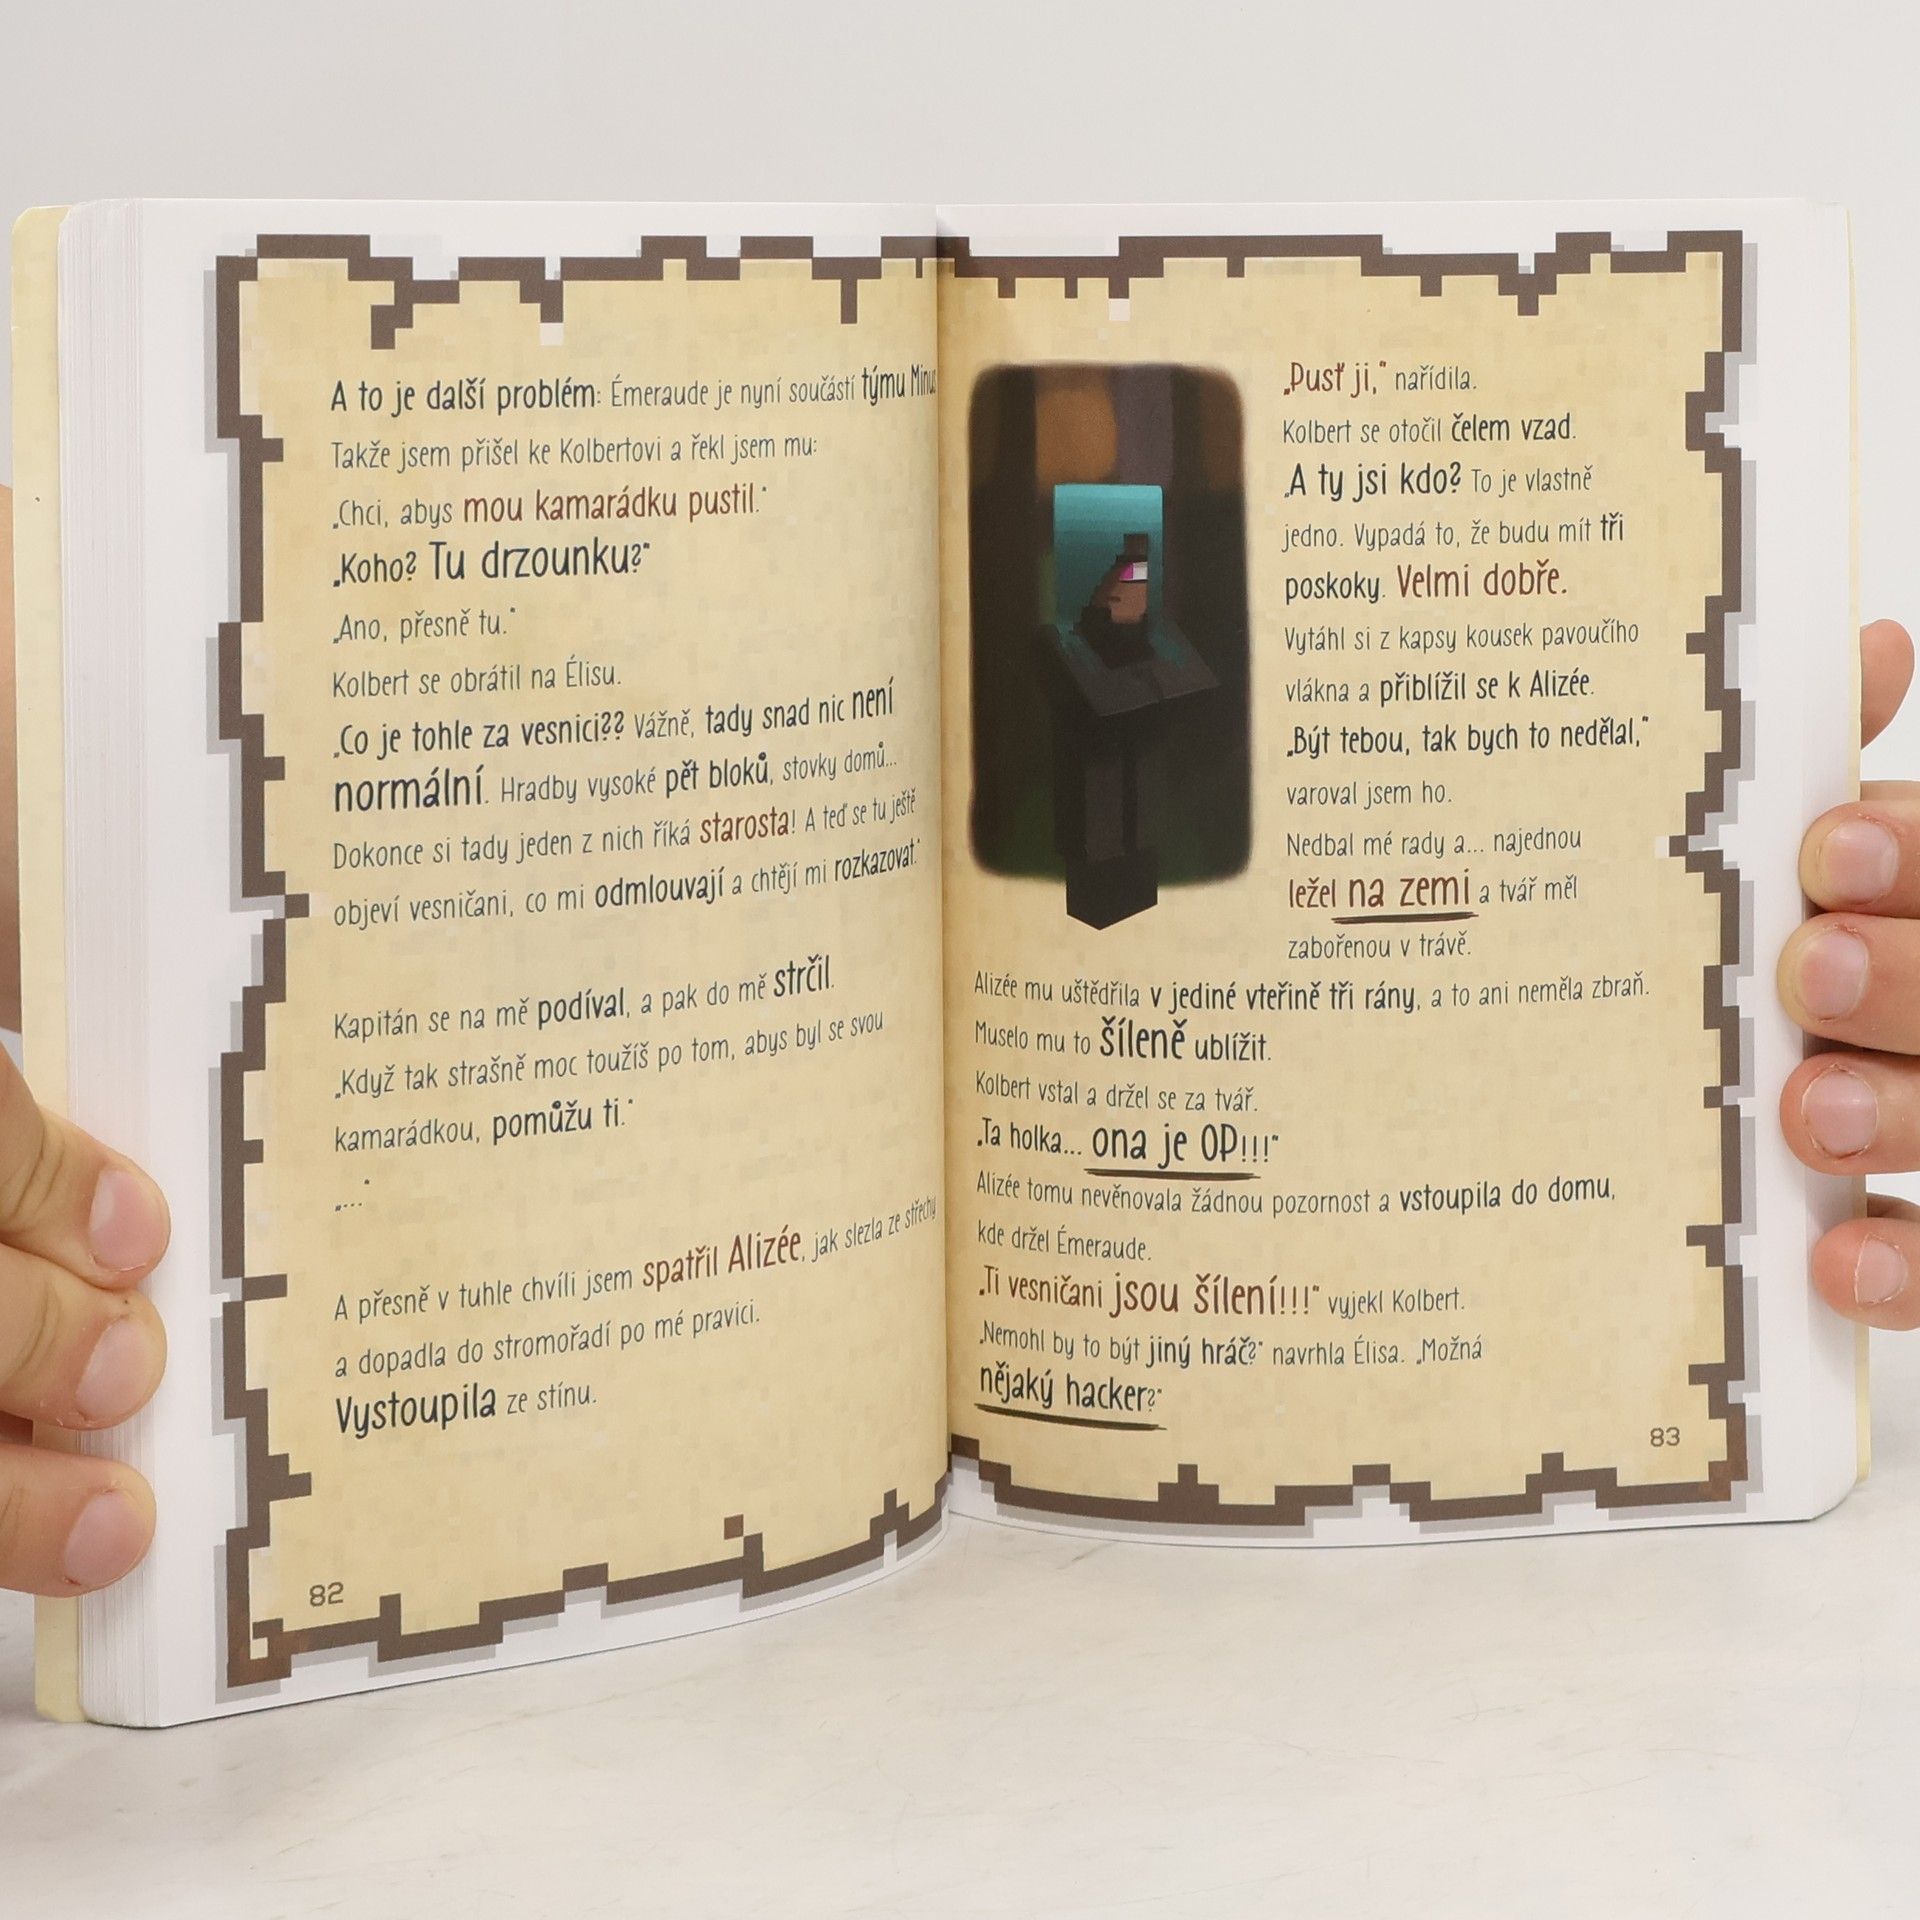 A to je další problém: Émeraude je nyní součástí týmu
Takže jsem přišel ke Kolbertovi a řekl jsem mu:
„Chci, abys mou kamarádku pustil.“
„Koho? Tu drzounku?“
„Ano, přesně tu.“
Kolbert se obrátil na Élisu.
„Co je tohle za vesnici?? Vážně, tady snad nic není
normální. Hradby vysoké pět bloků, stovky domů...
Dokonce si tady jeden z nich říká starosta! A teď se tu ještě
objeví vesničani, co mi odmlouvají a chtějí mi rozkazovat.“
Kapitán se na mě podíval, a pak do mě strčil.
„Když tak strašně moc toužíš po tom, abys byl se svou
kamarádkou, pomůžu ti.“
„...“
A přesně v tuhle chvíli jsem spatřil Alizée, jak slezla ze střechy
a dopadla do stromořadí po mé pravici.
Vystoupila ze stínu.
82
„Pusť ji,“ nařídila.
Kolbert se otočil čelem vzad.
„A ty jsi kdo? To je vlastně
jedno. Vypadá to, že budu mít tři
poskoky. Velmi dobře.
Vytáhl si z kapsy kousek pavoučího
vlákna a přiblížil se k Alizée.
„Být tebou, tak bych to nedělal,“
varoval jsem ho.
Nedbal mé rady a... najednou
ležel na zemi a tvář měl
zabořenou v trávě.
Alizée mu uštědřila v jediné vteřině tři rány, a to ani neměla zbraň.
Muselo mu to šíleně ublížit.
Kolbert vstal a držel se za tvář.
„Ta holka... ona je OP!!!“
Alizée tomu nevěnovala žádnou pozornost a vstoupila do domu,
kde držel Émeraude.
„Ti vesničani jsou šílení!!!“ vyjekl Kolbert.
„Nemohl by to být jiný hráč?“ navrhla Élisa. „Možná
nějaký hacker?“
83